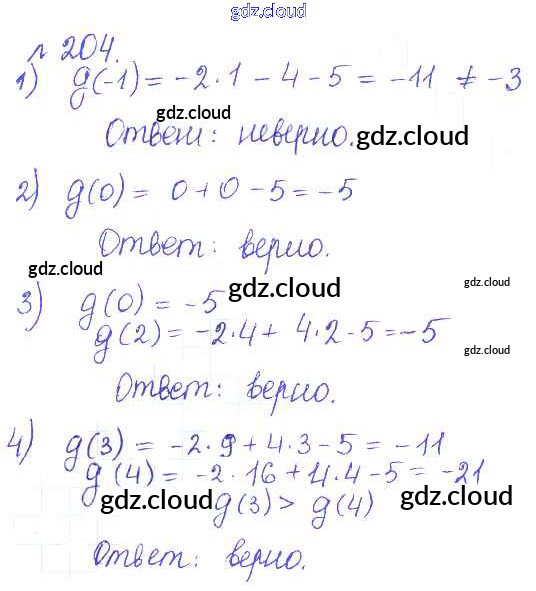 gdz.cloud
№ 204.
1) g(-1) = -2·1 - 4 - 5 = -11 ≠ -3
gdz.cloud
Ответ: неверно. gdz.cloud
2) g(0) = 0 + 0 - 5 = -5
Ответ: верно.
gdz.cloud
gdz.cloud gdz.cloud
3) g(0) = -5
g(2) = -2·4 + 4·2 - 5 = -5
gdz.cloud
Ответ: верно.
4) g(3) = -2·9 + 4·3 - 5 = -11
g(4) = -2·16 + 4·4 - 5 = -21
gdz.cloud g(3) > g(4) gdz.cloud
Ответ: верно.